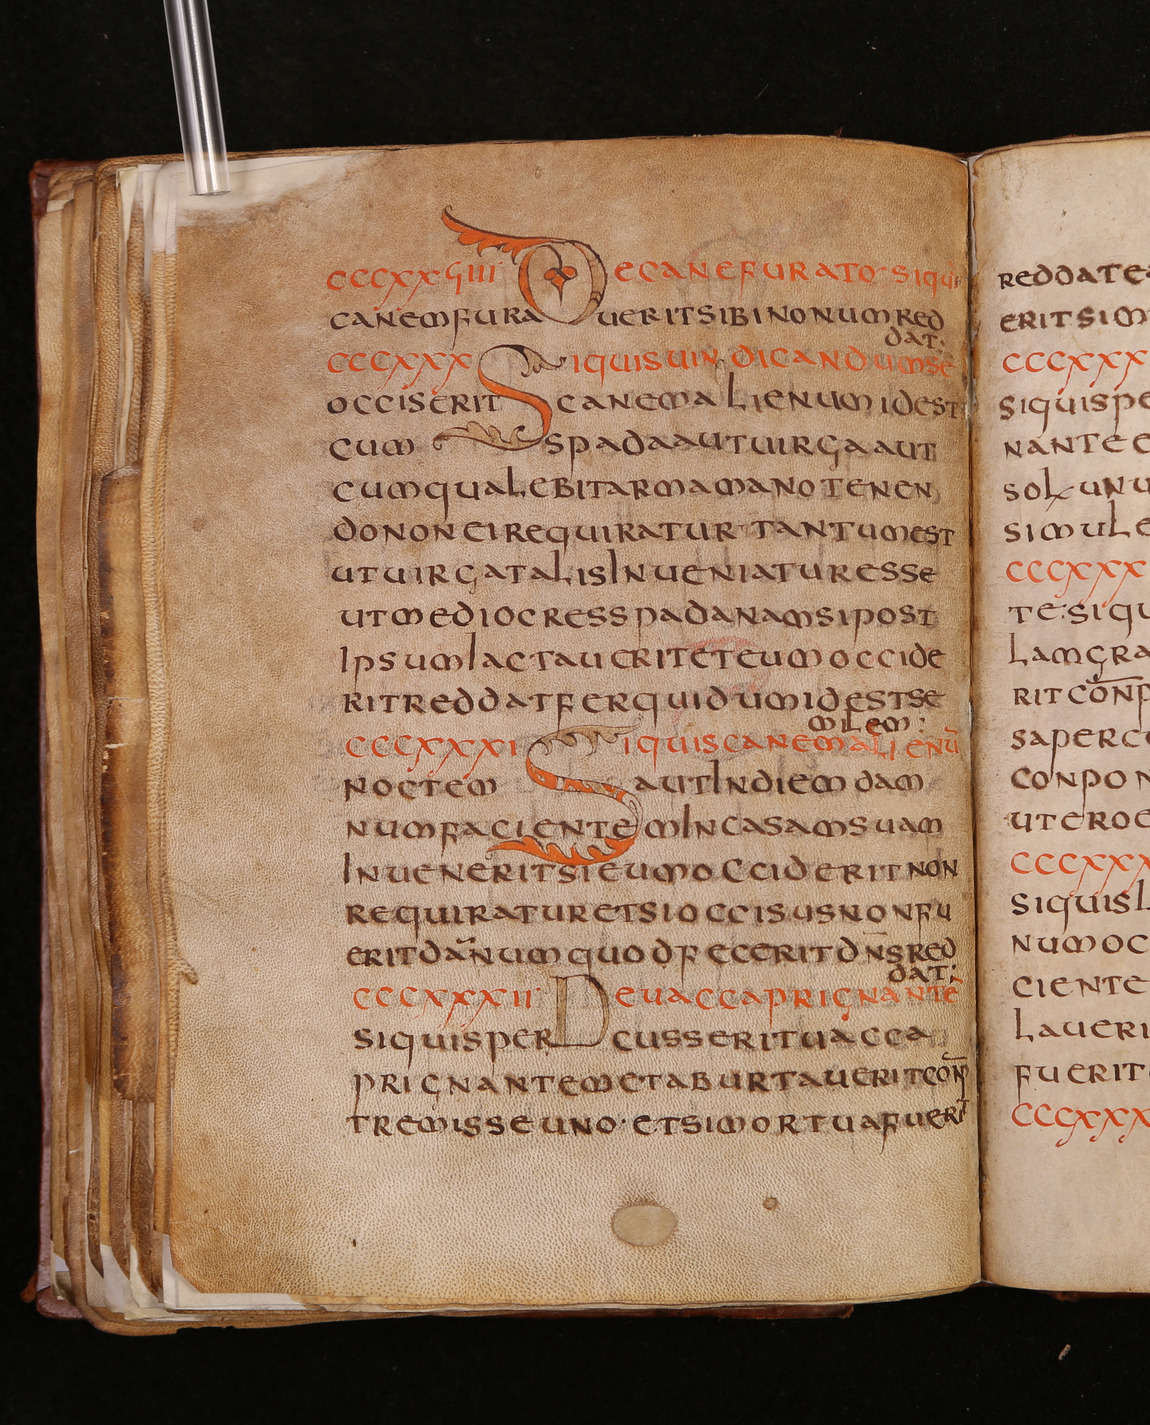 CCCXXϛIIII DE CANE FURATO· SI QUI
CANEM FURAUERIT SIBI NONUM RED
DAT·
CCCXXX SI QUIS UINDICANDUM SE
OCCISERIT CANEM ALIENUM IDEST
CUM SPADA AUT UIRGA AUT
CUM QUALEBIT ARMA MANO TENEN
DO NON EI REQUIRATUR TANTUM EST
UT UIRGA TALIS INUENIATUR ESSE
UT MEDIOCRES SPADA NAM SI POST
IPSUM IACTAUERIT ET EUM OCCIDE
RIT REDDAT FERQUIDUM IDEST SE
MILEM:
CCCXXXI SI QUIS CANEM ALIENŪ
NOCTEM AUT IN DIEM DAM
NUM FACIENTEM IN CASAM SUAM
INUENERIT SI EUM OCCIDERIT NON
REQUIRATUR ET SI OCCISUS NON FU
ERIT DA̅NUM QUOD FECERIT DN̄S RED
DAT:
CCCXXXII DE UACCA PRIGNANTĒ
SI QUIS PERCUSSERIT UACCA
PRIGNANTEM ET ABURTAUERIT CON̄P
TREMISSE UNO· ET SI MORTUA FUERIT
REDDAT E
ERIT SIM
CCCXXX
SI QUIS PE
NANTE
SOL UNU
SIMULE
CCCXXX
TE· SI QU
LAM GRA
RIT CON̄P
SAPER
CONPON
UTERO
CCCXXX
SI QUIS
NUM OC
CIENTE
LAUERI
FUERIT
CCCXXX